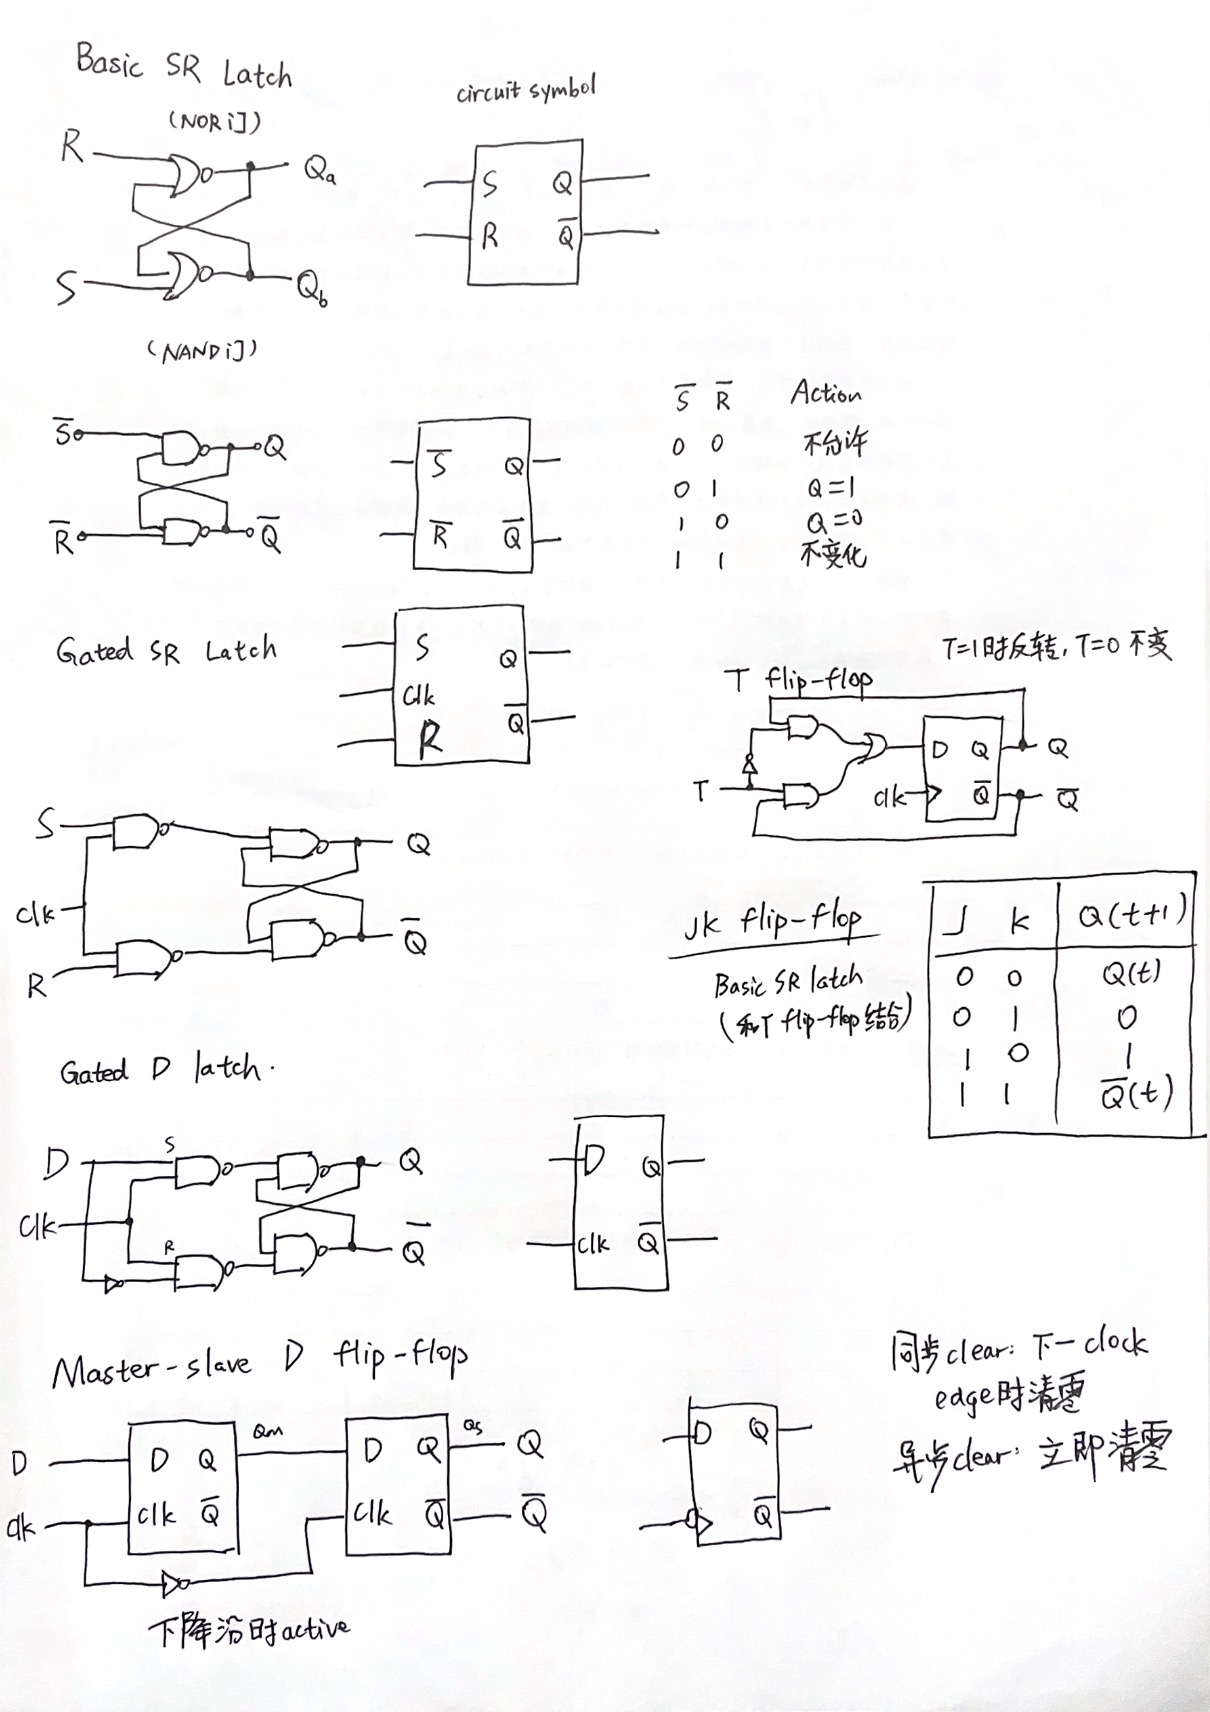 Basic SR Latch
circuit symbol
(NOR门)
R
Qa
S Q
R Q̅
S
Qb
(NAND门)
S̅ R̅ Action
0 0 不允许
0 1 Q=1
1 0 Q=0
1 1 不变化
S̅ Q
R̅ Q̅
S̅ Q
R̅ Q̅
Gated SR Latch
S Q
Clk
R Q̅
T=1时反转, T=0 不变
T flip-flop
D Q Q
T
clk Q̅ Q̅
S Q
Clk
R Q̅
JK flip-flop
Basic SR latch
(和T flip-flop结合)
J K Q(t+1)
0 0 Q(t)
0 1 0
1 0 1
1 1 Q̅(t)
Gated D latch.
D S Q
Clk
R Q̅
D Q
Clk Q̅
Master-slave D flip-flop
D D Q Qm D Q Qs Q
clk Clk Q̅ Clk Q̅ Q̅
下降沿时active
D Q
Q̅
同步clear: 下一clock
edge时清零
异步clear: 立即清零